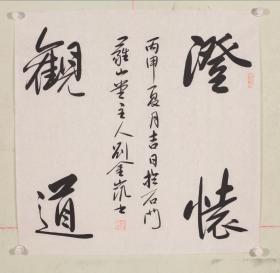 澄懷
觀道
丙申夏月吉日於石門
蘿山堂主人劉金嵐書